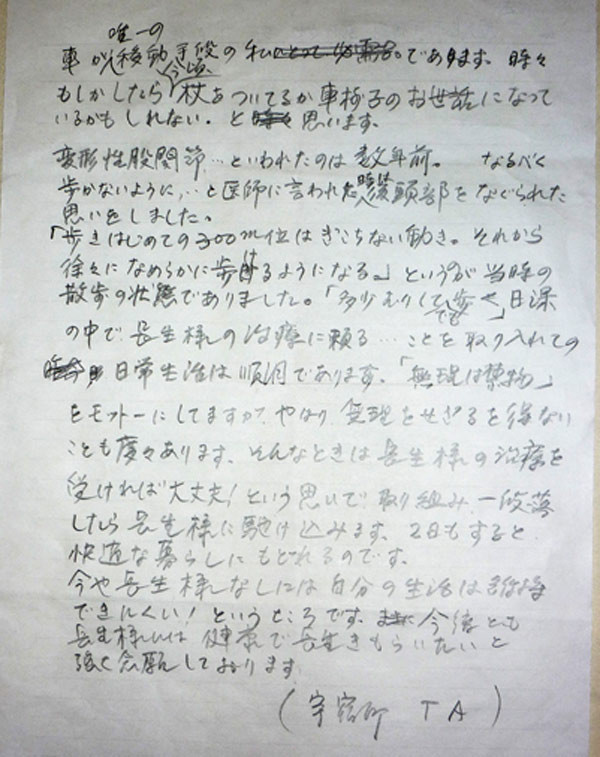 唯一の
車が移動手段の私であります。時々
今頃
もしかしたら杖をついてるか車椅子のお世話になって
いるかもしれない。と思います。
変形性股関節…といわれたのは数年前。なるべく
歩かないように…と医師に言われた時は後頭部をなぐられた
思いをしました。
「歩きはじめての300m位はぎこちない動き。それから
徐々になめらかに歩けるようになる。」というのが当時の
散歩の状態でありました。「多少むりしてでも歩く」日課
の中で長生様の治療に頼る…ことを取り入れての
日常生活は順調であります。「無理は禁物」
をモットーにしてますが、やはり無理をせざるを得ない
ことも度々あります。そんなときは長生様の治療を
受ければ大丈夫!という思いで取り組み、一段落
したら長生様に駆け込みます。2日もすると
快適な暮らしにもどれるのです。
今や長生様なしには自分の生活は維持
できにくい!というところです。今後とも
長生様には健康で長生きもらいたいと
強く念願しております
(宇宿町 TA)